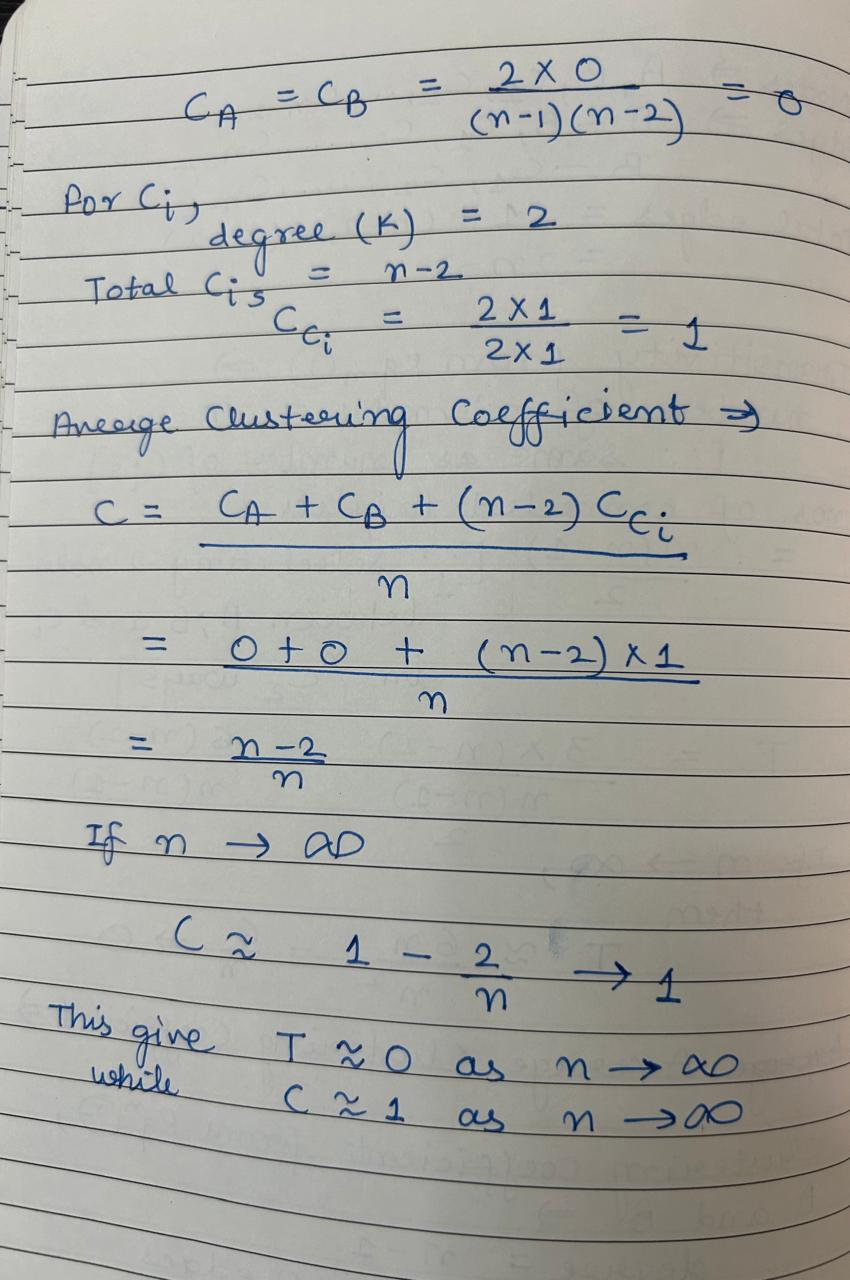 C_A = C_B = (2 × 0) / ((n-1)(n-2)) = 0
for C_i,
degree (K) = 2
Total C_i s = n-2
C_{C_i} = (2 × 1) / (2 × 1) = 1
Average Clustering Coefficient ⇒
C = (C_A + C_B + (n-2) C_{C_i}) / n
= (0 + 0 + (n-2) × 1) / n
= (n-2) / n
If n → ∞
C ≈ 1 - 2/n → 1
This give T ≈ 0 as n → ∞
while C ≈ 1 as n → ∞